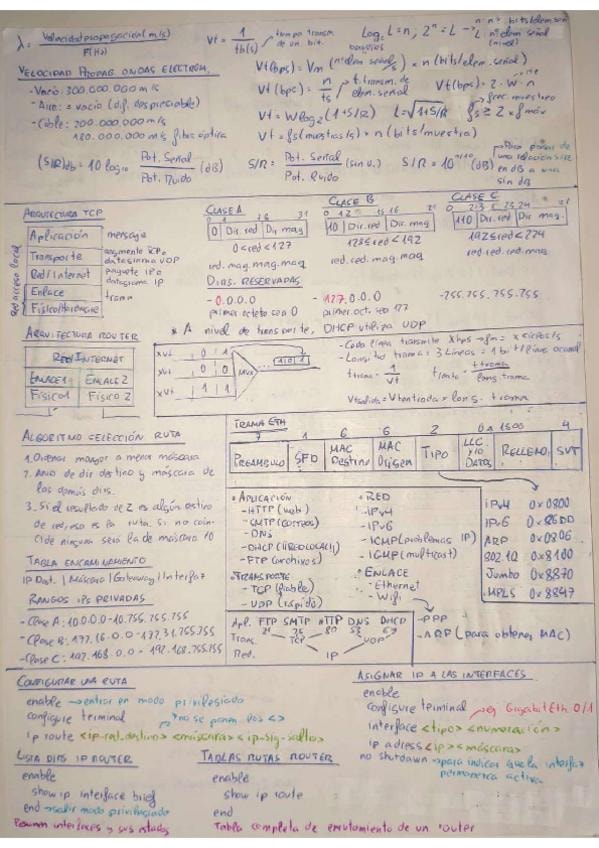 λ = Velocidad propagación (m/s) / F(Hz)
Vt = 1 / tb(s) → tiempo transm. de un bit.
Log₂ L = n, 2ⁿ = L → n: nº bits/elem señ
L: nº elem señal (nivel)
baudios
VELOCIDAD PROPAG. ONDAS ELECTROM.
- Vacío: 300.000.000 m/s
- Aire: ≈ vacío (dif. despreciable)
- Cable: 200.000.000 m/s
180.000.000 m/s fibra óptica
Vt (bps) = Vm (nº elem señal/s) × n (bits/elem. señal)
Vt (bps) = n / ts → t. transm. de elem. señal
Vt (bps) = 2 · W · n
Vt = W log₂ (1 + S/R)
L = √1+S/R
frec. muestreo
fs ≥ 2 × f máx
Vt = fs (muestras/s) × n (bits/muestra)
(S/R)db = 10 log₁₀ Pot. Señal / Pot. Ruido (dB)
S/R = Pot. Señal / Pot. Ruido (sin u.)
S/R = 10^(n/10) (dB)
Para pasar de una relación S/R en dB a una sin dB
ARQUITECTURA TCP
Red acceso local
Aplicación mensaje
Transporte segmento TCP o datagrama UDP
Red/Internet paquete IP o datagrama IP
Enlace trama
Físico/Hardware
CLASE A
0 Dir. red Dir maq
0 < red < 127
red. maq. maq. maq
CLASE B
10 Dir. red Dir. maq
128 ≤ red < 192
red. red. maq. maq
CLASE C
0 2 3 23 24 31
110 Dir. red Dir. maq.
192 ≤ red < 224
red. red. red. maq
DIRS. RESERVADAS
- 0.0.0.0
primer octeto son 0
- 127.0.0.0
primer. oct. son 127
- 255.255.255.255
* A nivel de transporte, DHCP utiliza UDP
ARQUITECTURA ROUTER
RED/INTERNET
ENLACE 1 ENLACE 2
FÍSICO 1 FÍSICO 2
xVt 0 0
xVt 0 1
xVt 1 1
MUX
1 0 1
- Cada línea transmite X bps → fm = x ciclos/s
- Longitud trama = 3 líneas = 1 bit/línea
ttrama = 1 / Vt
tmito = ttrama / long. trama
Vtsalida = Vtentrada × long. trama
ALGORITMO SELECCIÓN RUTA
1. Ordenar mayor a menor máscara
2. AND de dir destino y máscara de las demás dirs.
3. Si el resultado de 2 es algún destino de red, esa es la ruta. Si no coincide ninguna será la de máscara /0
TABLA ENCAMINAMIENTO
IP Dat. | Máscara | Gateway | Interfaz
RANGOS IPs PRIVADAS
- Clase A: 10.0.0.0 - 10.255.255.255
- Clase B: 172.16.0.0 - 172.31.255.255
- Clase C: 192.168.0.0 - 192.168.255.255
TRAMA ETH
7 1 6 6 2 0 a 1500 4
PREÁMBULO SFD MAC Destino MAC Origen TIPO LLC y/o DATOS RELLENO SVT
• APLICACIÓN
- HTTP (web)
- SMTP (correos)
- DNS
- DHCP (IREDLOCAL)
- FTP (archivos)
• TRANSPORTE
- TCP (fiable)
- UDP (rápido)
• RED
- IPv4
- IPv6
- ICMP (problemas IP)
- IGMP (multicast)
• ENLACE
- Ethernet
- Wifi
- PPP
- ARP (para obtener MAC)
IPv4 0x0800
IPv6 0x86DD
ARP 0x0806
802.1Q 0x8100
Jumbo 0x8870
MPLS 0x8847
Apl. FTP SMTP HTTP DNS DHCP
21 25 80 53 67
Trans. TCP UDP
Red. IP
CONFIGURAR UNA RUTA
enable → entrar en modo privilegiado
configure terminal → no se ponen los <>
ip route <ip-red-destino> <máscara> <ip-sig-salto>
ASIGNAR IP A LAS INTERFACES
enable
configure terminal → ej GigabitEth 0/1
interface <tipo> <numeración>
ip adress <ip> <máscara>
no shutdown → para indicar que la interfaz permanezca activa
LISTA DIRS IP ROUTER
enable
show ip interface brief
end → salir modo privilegiado
Resumen interfaces y sus estados
TABLAS RUTAS ROUTER
enable
show ip route
end
Tabla completa de enrutamiento de un router